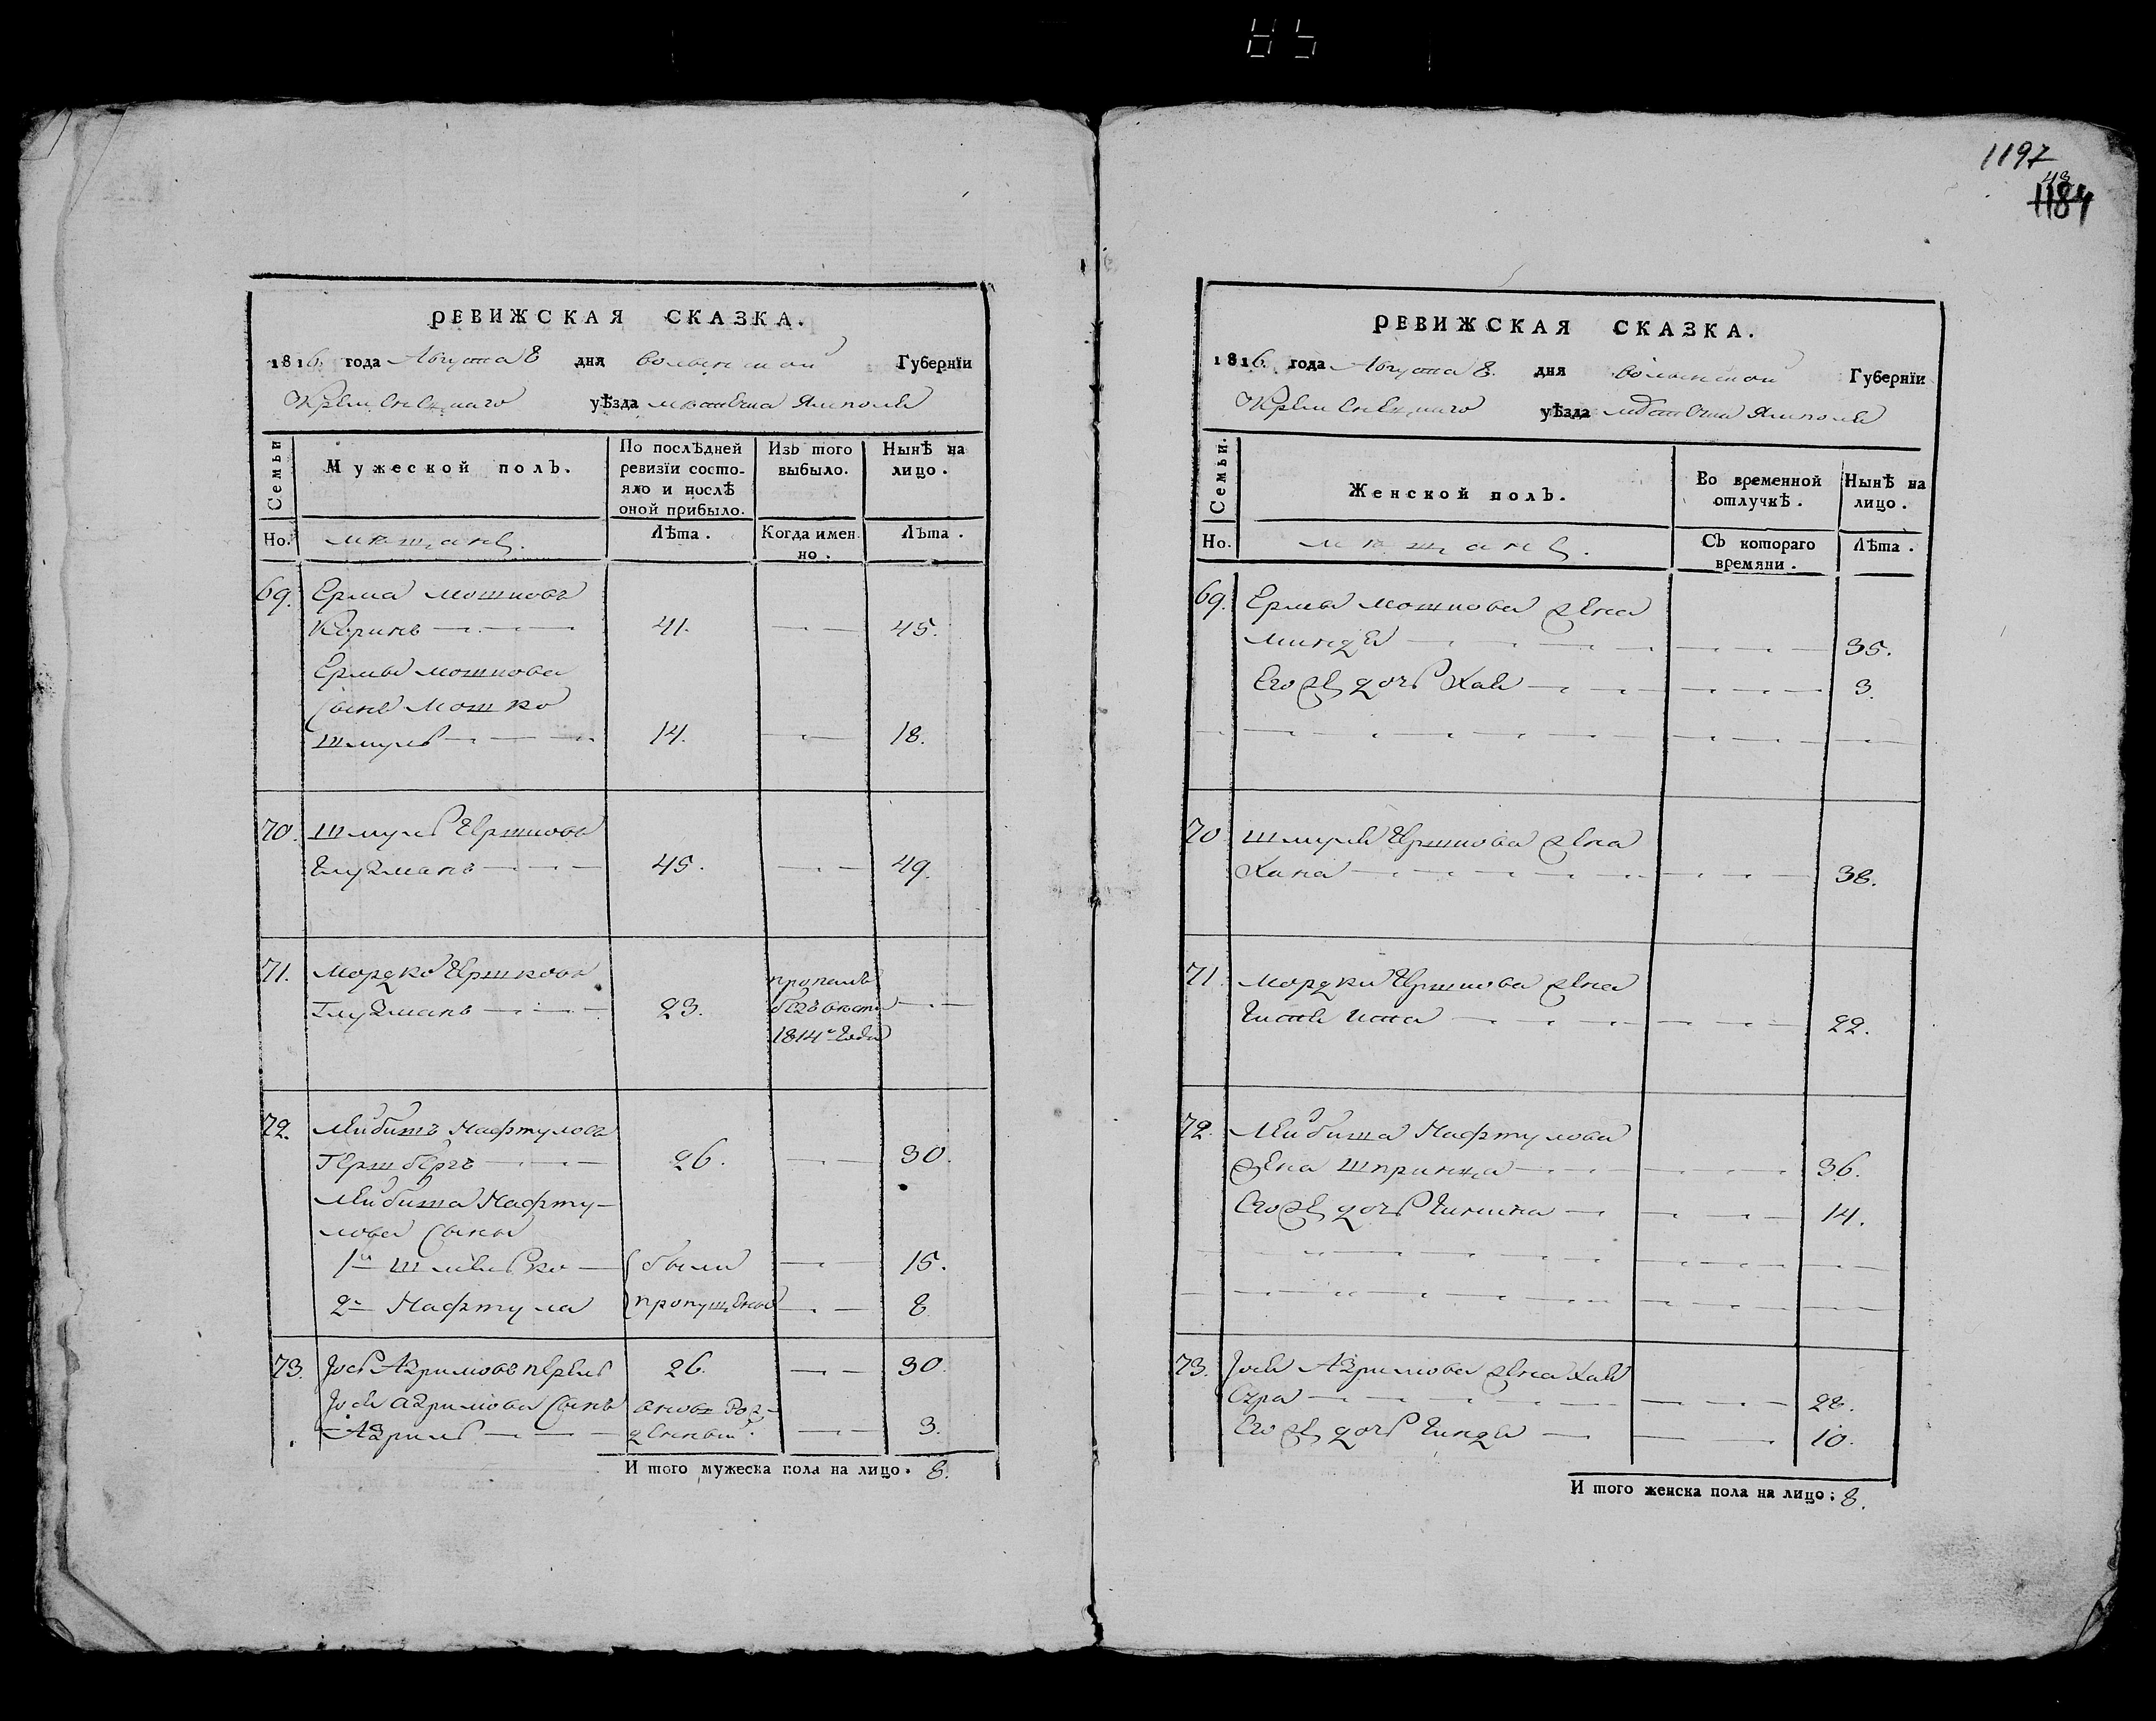 1197
43
1184
РЕВИЖСКАЯ СКАЗКА.
1816. года Августа 8 дня Волынской Губернїи
Кременецкаго уѣзда мѣстечка Ямполя
Семьи
Мужеской полъ.
По послѣдней ревизїи состояло и послѣ оной прибыло.
Изъ того выбыло.
Нынѣ на лицо.
Но.
мѣщане
Лѣта.
Когда именно.
Лѣта.
69. Ерма Мошковъ
Коринь 41. 45.
Ермы Мошкова
Сынъ Мошко
Шмуль 14. 18.
70. Шмуль Гершковъ
Глузманъ 45. 49.
71. Мордко Гершковъ
Глузманъ 23. пропалъ безъ вѣсти 1814го Года
72. Лейбишъ Нафтуловъ
Гершбергъ 26. 30.
Лейбиша Нафту-
лова Сыны
1й Шлевко были 15.
2й Нафтула пропущены 8
73. Иось Азрилювъ 26. 30.
Иося Азрилюва Сынъ вновь рож-
Азриль денный 3.
И того мужеска пола на лицо. 8.
РЕВИЖСКАЯ СКАЗКА.
1816. года Августа 8. дня Волынской Губернїи
Кременецкаго уѣзда мѣстечка Ямполя
Семьи.
Женской полъ.
Во временной отлучкѣ.
Нынѣ на лицо.
Но.
мѣщане
Съ котораго времяни.
Лѣта.
69. Ермы Мошкова жена
Миндя 35.
Его же дочь Хая 3.
70 Шмуля Гершкова жена
Хана 38.
71. Мордки Гершкова жена
Ита 22.
72. Лейбиша Нафтулова
жена Шпринца 36.
Его же дочь 14.
73. Иося Азрилюва жена Хая
Сура 28.
Его же дочь Гиндя 10.
И того женска пола на лицо: 8.